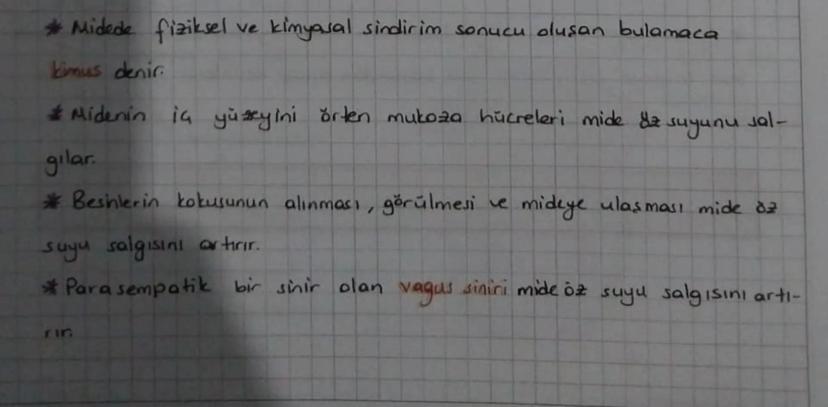 * Midede fiziksel ve kimyasal sindirim sonucu oluşan bulamaca
kimus denir.
* Midenin iç yüzeyini örten mukoza hücreleri mide öz suyunu sal-
gılar.
* Besinlerin kokusunun alınması, görülmesi ve mideye ulaşması mide öz
suyu salgısını artırır.
* Parasempatik bir sinir olan vagus siniri mide öz suyu salgısını artı-
rır.